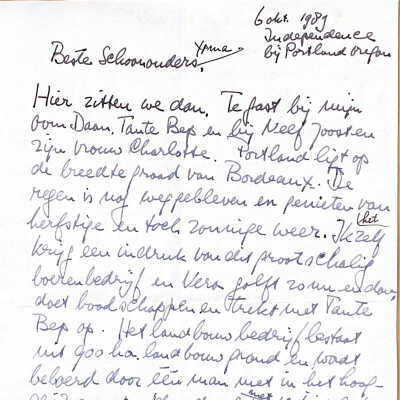 6 okt. 1989
Independence
bij Portland oregon
Beste Schoonouders, Ypma
Hier zitten we dan. Te gast bij mijn
oom Daan, Tante Bep en bij Neef Joost en
zijn vrouw Charlotte. Portland ligt op
de breedte graad van Bordeaux. De
regen is nog weggebleven en genieten van
herfstige en toch zonnige weer. Ik zelf
het
krijg een indruk van dit grootschalig
boerenbedrijf en Vera golft zo nu en dan,
doet boodschappen en trekt met Tante
Bep op. Het landbouwbedrijf bestaat
uit 900 ha. landbouwgrond en wordt
beheerd door één man met in het hoog-